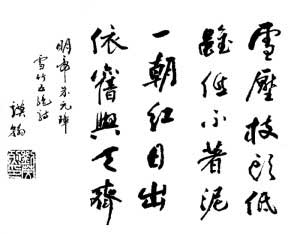 雪壓枝頭低
雖低不著泥
一朝紅日出
依舊與天齊
明帝朱元璋
雪竹五絕詩